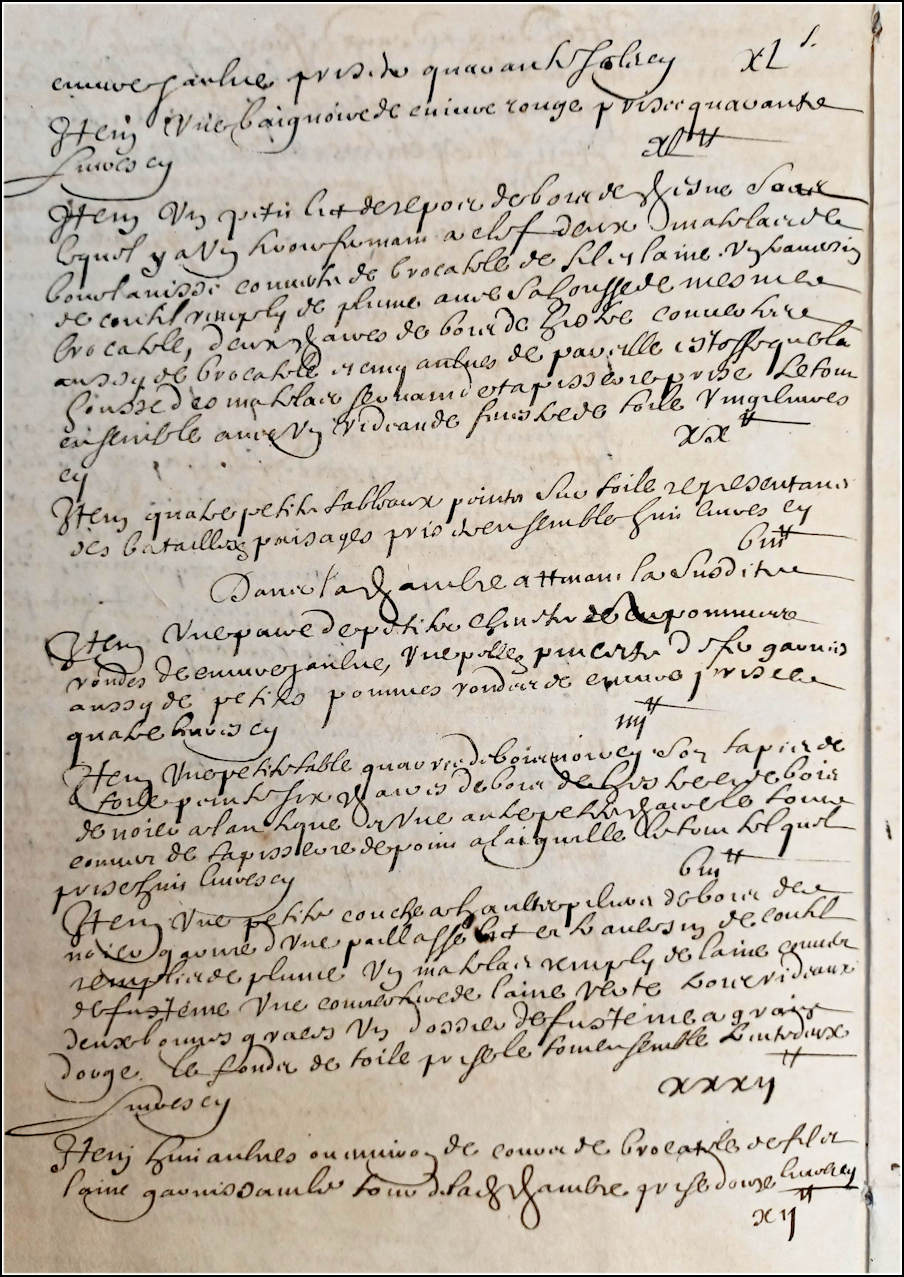 cuivre jaulne prisée quarante solz cy xL s.
Item Une baignoire de cuivre rouge prisee quarante
livres cy xL tt
Item Un petit lict de repos de bois de chesne soubz
lequel y a Un tiroir fermant a clef deux matelas de
bourlanisse couverts de brocatele de fil et laine Un traversin
de coutil remply de plume avec sa housse de mesme
brocatele, deux chaires de bois de hestre couvertes
aussy de brocatele et cinq aulnes de pareille estoffe que la
housse des matelas servant de tapisserie prise le tout
ensemble avec Un rideau de fenestre de toile Vingt livres
cy xx tt
Item quatre petits tableaux peints sur toile representans
des batailles et paisages prisés ensemble huit livres cy
viii tt
Dans la chambre attenant la susditte
Item Une paire de petits chenets de a pommes
rondes de cuivre jaulne, Une pelle et pincette de fer garnies
aussy de petites pommes rondes de cuivre prisee
quatre livres cy iiij tt
Item Une petite table quarrée de bois noircy son tapis de
toile peinte six chaires de bois de hestre et de bois
de noier a lantique et Une autre petite chaire le tout
couver de tapisserie de point a laiguille le tout tel quel
prise huit livres cy viii tt
Item Une petite couche a haults piliers de bois de
noier garnie d'Une paillasse lict et traversin de coutil
remplis de plume Un matelas remply de laine couver
de fusteine Une couverture de laine verte trois rideaux
deux bonnes graces Un dossier de fusteine a grains
dorge le fonds de toile prise le tout ensemble trente deux
livres cy xxxij tt
Item huit aulnes ou environ de couver de brocatele de fil et
laine garnissant le tour de lad chambre prise douze livres cy
xij tt